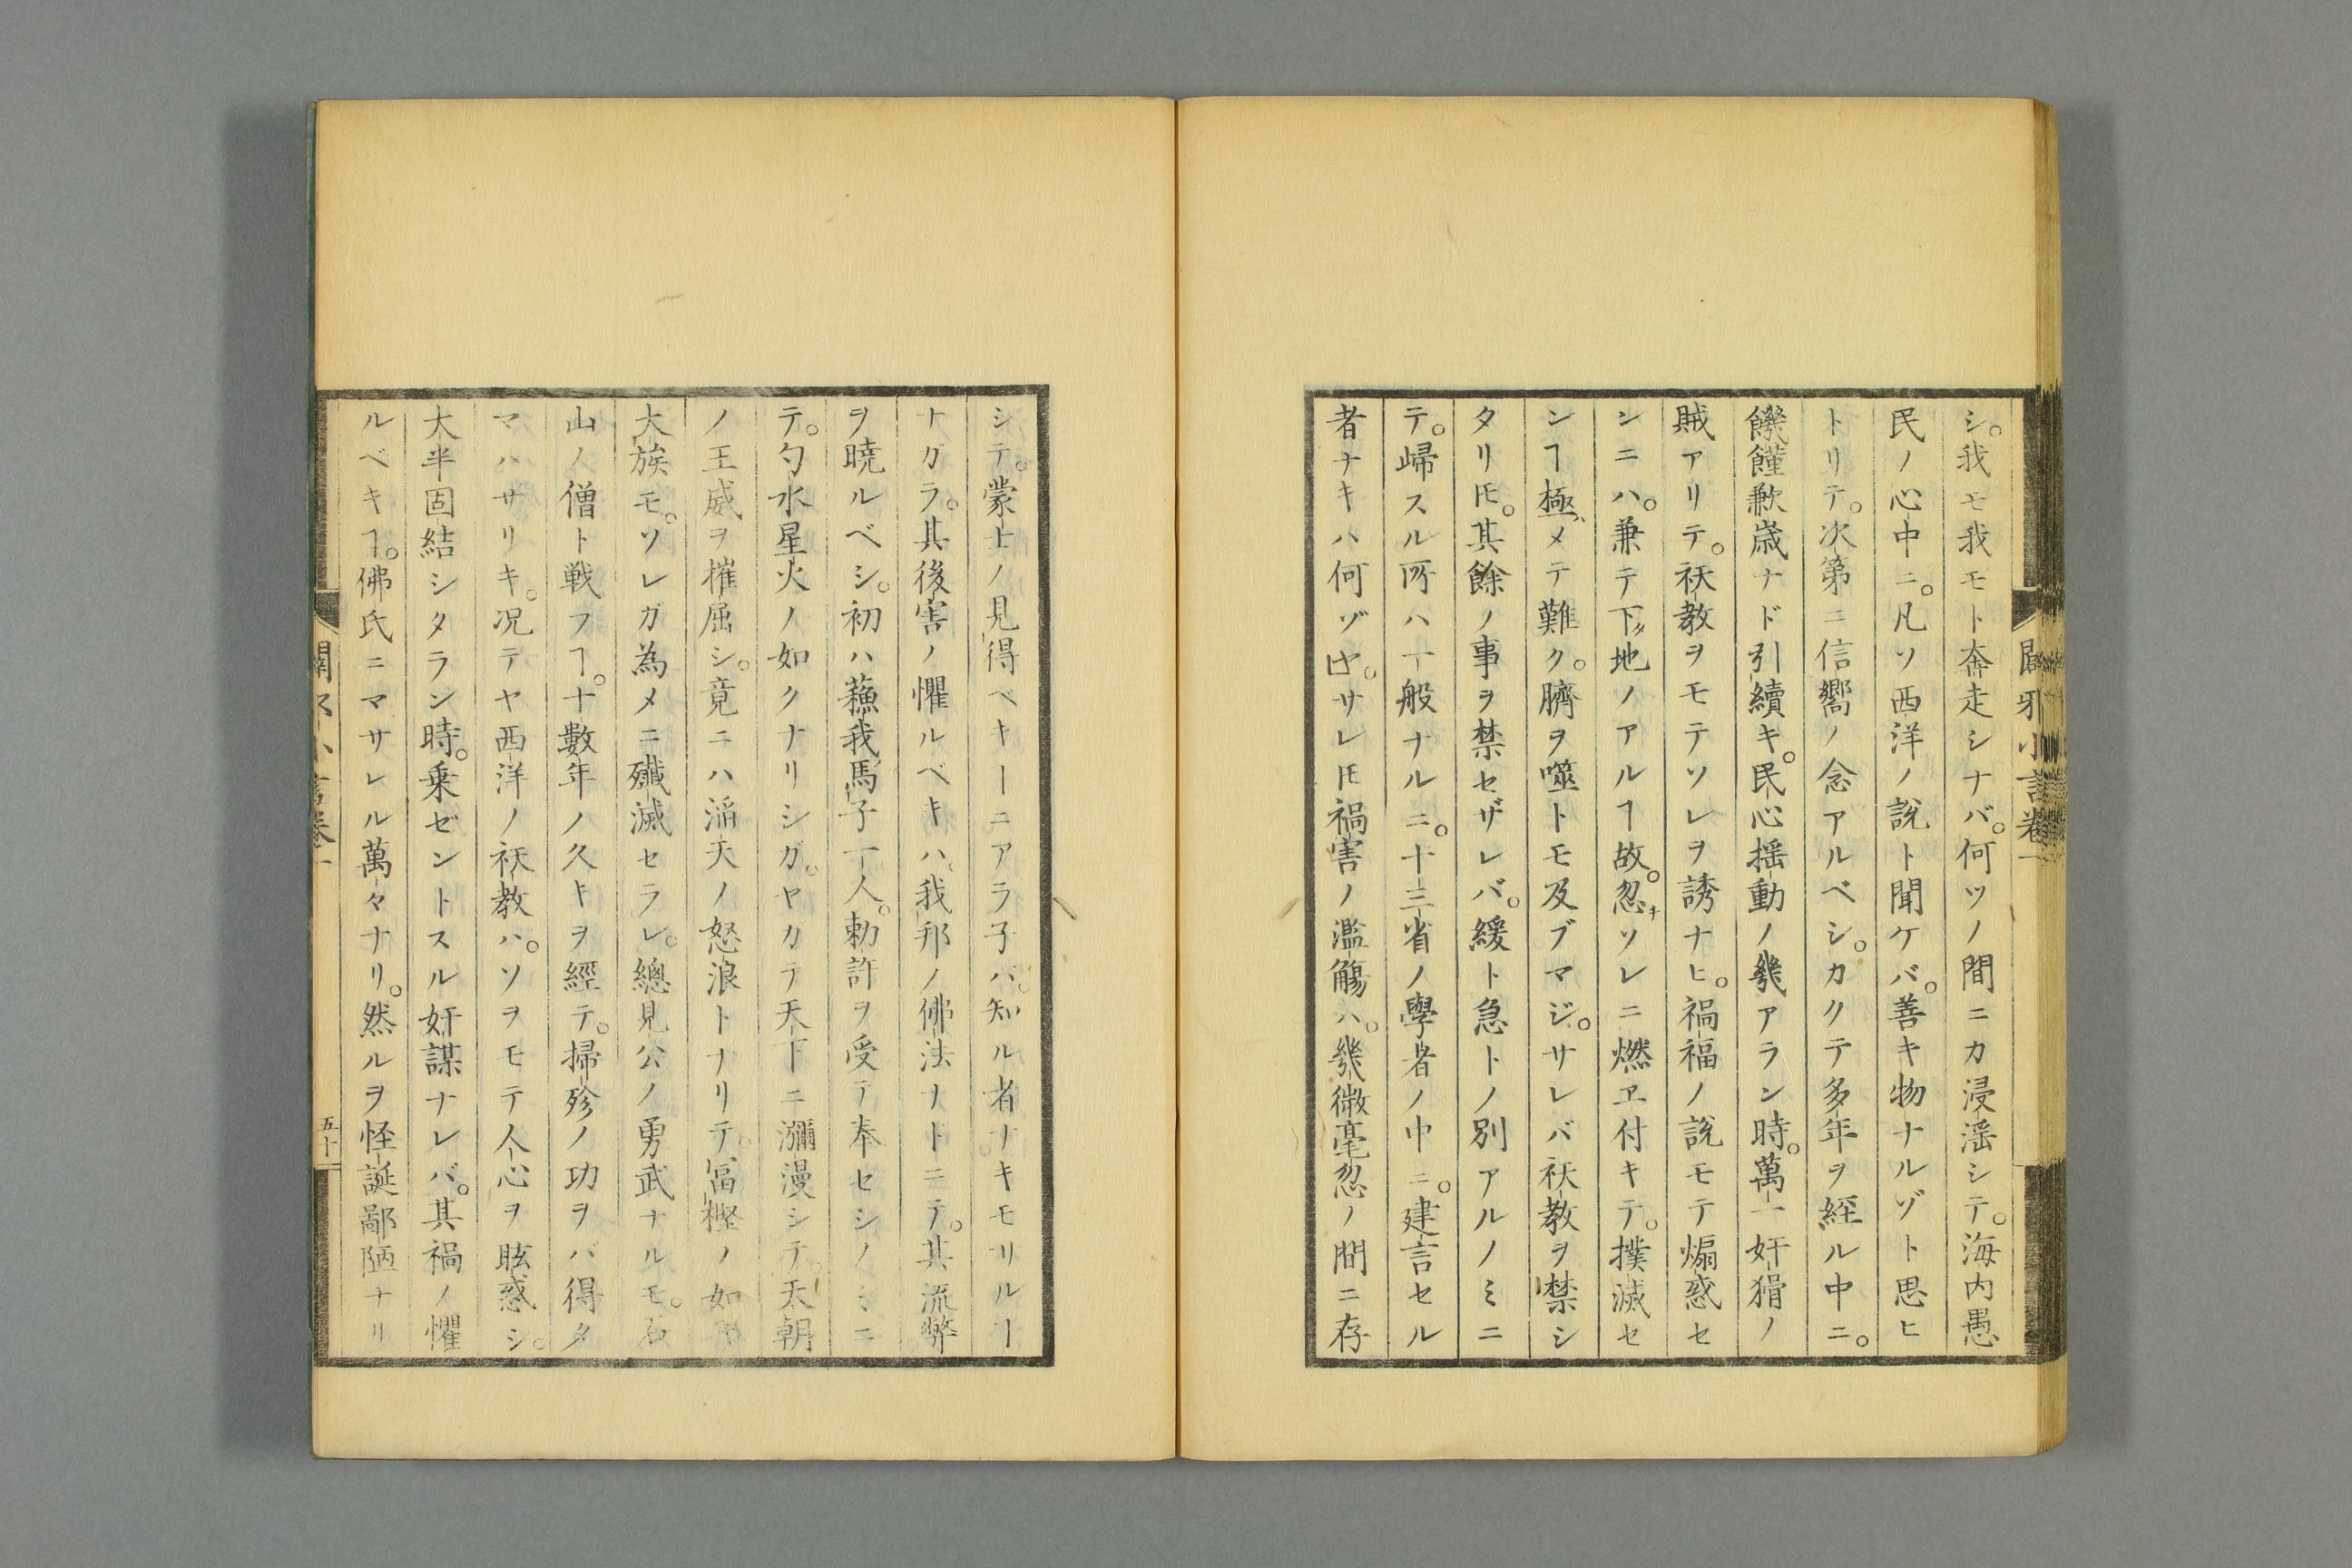 シ。我モ我モト奔走シナバ。何ツノ間ニカ浸滛シテ。海内愚
民ノ心中ニ。凡ソ西洋ノ說ト聞ケバ。善キ物ナルゾト思ヒ
トリテ。次第ニ信嚮ノ念アルベシ。カクテ多年ヲ経ル中ニ。
饑饉歉歳ナド引續キ。民心揺動ノ幾アラン時。萬一奸猾ノ
賊アリテ。祅教ヲモテソレヲ誘ナヒ。禍福ノ說モテ煽惑セ
ンニハ。兼テ下タ地ノアルヿ故。忍キソレニ燃エ付キテ。撲滅セ
ンヿ極ハメテ難ク。臍ヲ噬トモ及ブマジ。サレバ祅教ヲ禁シ
タリ𪜈。其餘ノ事ヲ禁セザレバ。緩ト急トノ別アルノミニ
テ。歸スル所ハ一般ナルニ。十三省ノ學者ノ中ニ。建言セル
者ナキハ何ゾヤ。サレ𪜈禍害ノ濫觴ハ。幾微毫忽ノ間ニ存
闢邪小言卷一
シテ。蒙士ノ見得ベキヿニアラ子バ。知ル者ナキモリルヿ
ナガラ。其後害ノ懼ルベキハ。我邦ノ佛法ナトニテ。其流弊
ヲ暁ルベシ。初ハ蘓我馬子一人。勅許ヲ受テ奉セシノミニ
テ。勺水星火ノ如クナリシガ。ヤカテ天下ニ瀰漫シテ。天朝
ノ王威ヲ摧屈シ。竟ニハ滔天ノ怒浪トナリテ。冨樫ノ如キ
大族モ。ソレガ為メニ殱滅セラレ。總見公ノ勇武ナルモ。石
山ノ僧ト戦フヿ。十數年ノ久キヲ經テ。掃殄ノ功ヲバ得タ
マハサリキ。况テヤ西洋ノ祅教ハ。ソヲモテ人心ヲ眩惑シ。
大半固結シタラン時。乗ゼントスル奸謀ナレバ。其禍ノ懼
ルベキヿ。佛氏ニマサレル萬々ナリ。然ルヲ怪誕鄙陋ナリ
闢邪小言卷一
五十一